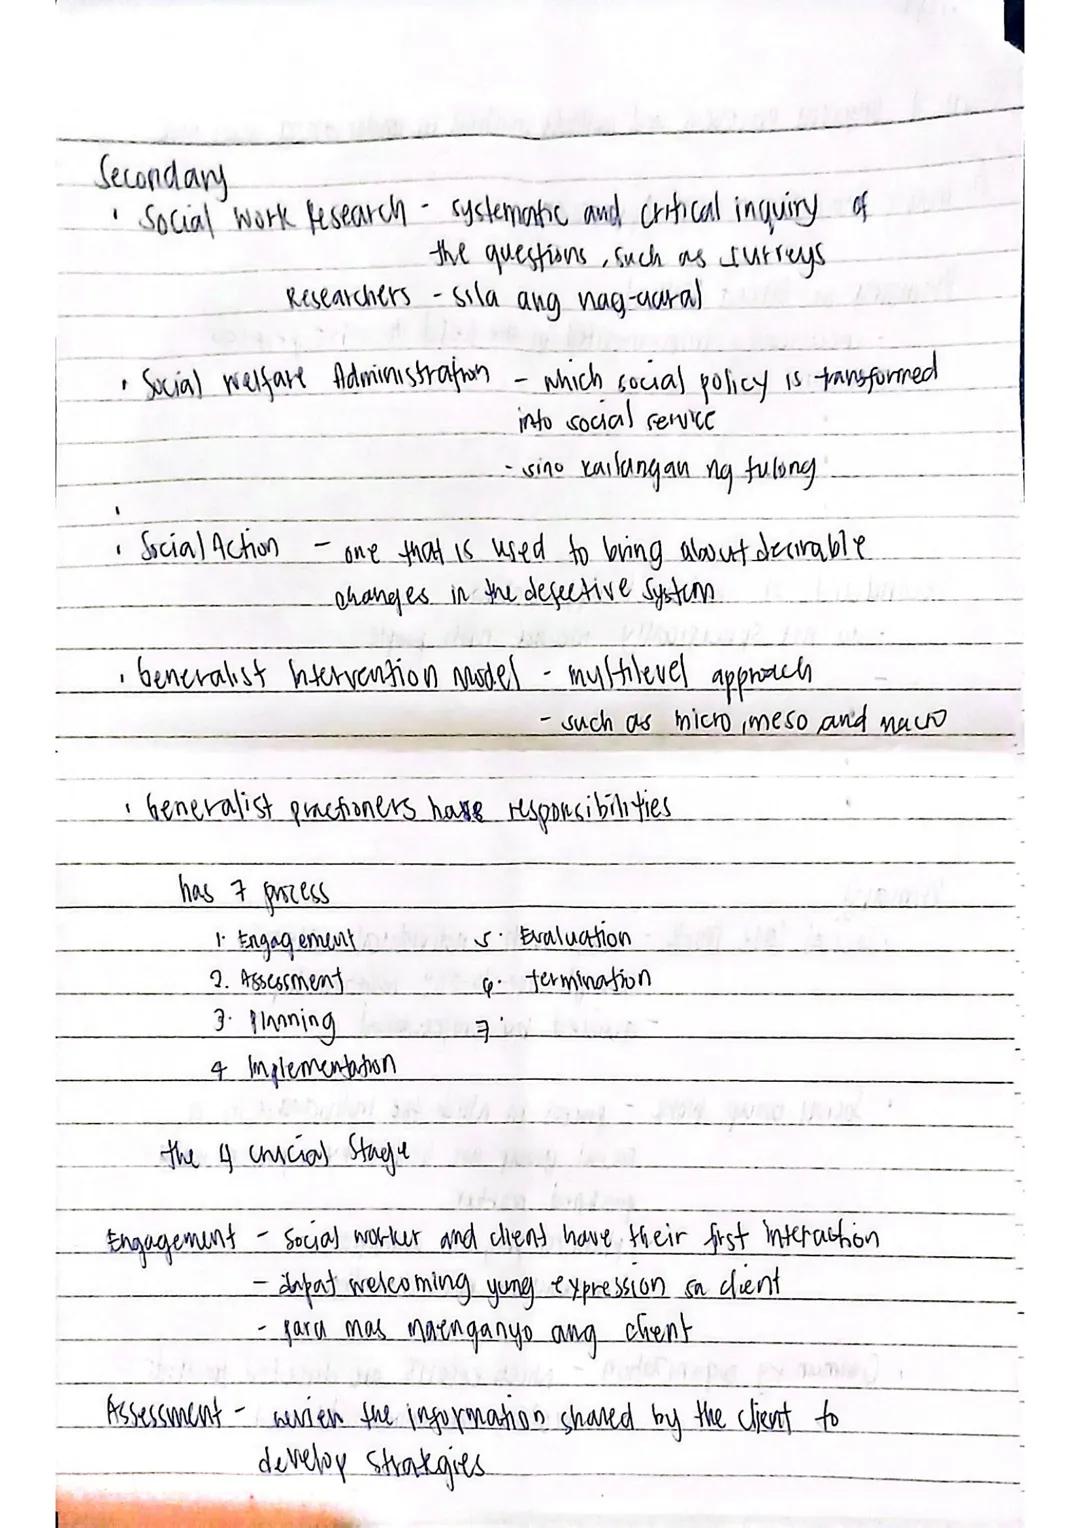 Secondary
· Social Work Research - systematic and critical inquiry of
the questions, such as surveys
Researchers - sila ang nag-aaral
· Social welfare Administration - which social policy is transformed
into social service
- sino kailangan ng tulong
· Social Action - one that is used to bring about desirable
changes in the defective system
· Generalist Intervention Model - multilevel approach
- such as micro, meso and macro
· Generalist practioners have responsibilities
has 7 process
1. Engagement 5. Evaluation
2. Assessment 6. termination
3. Planning 7.
4 Implementation
the 4 crucial Stage
Engagement - Social worker and client have their first interaction
- dapat welcoming yung expression sa client
- para mas maenganyo ang client
Assessment - the information shared by the client to
develop strategies